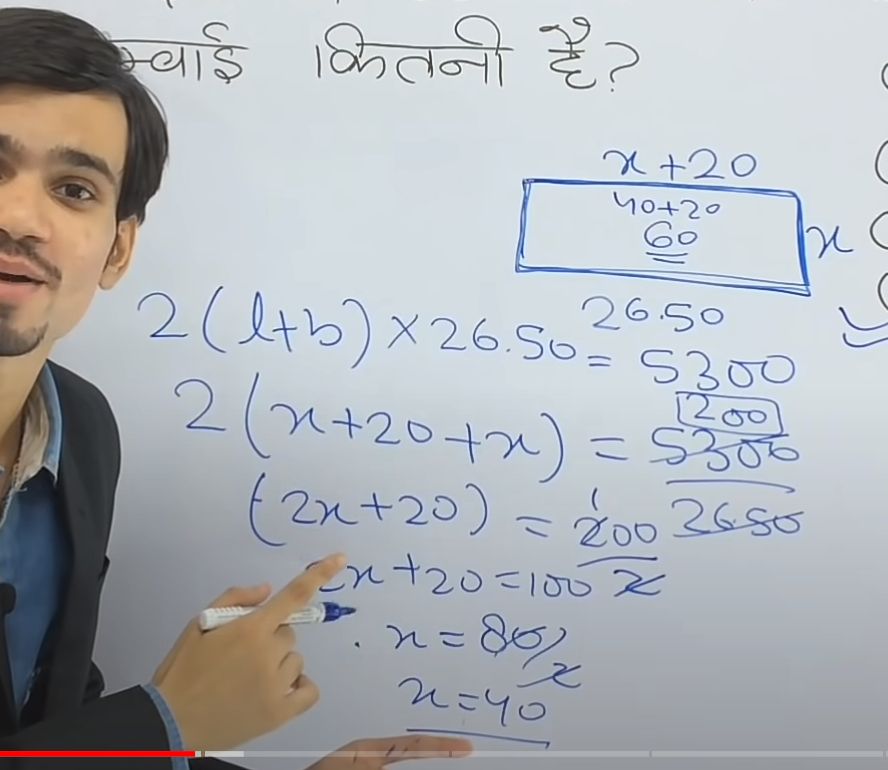 म्बाई कितनी है?
x+20
40+20
60
x
26.50
2(l+b)×26.50=5300
2(x+20+x)=5300/26.50
200
(2x+20)=200/2
1
2x+20=100
x=80/2
x=40